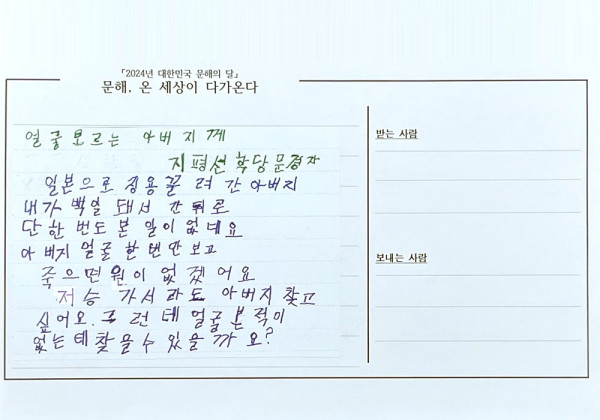 「2024년 대한민국 문해의 달」
문해, 온 세상이 다가온다
얼굴 모르는 아버지께
지평선학당 문경자
일본으로 징용 끌려 간 아버지
내가 백일 돼서 간 뒤로
단 한 번도 본 일이 없네요
아버지 얼굴 한 번만 보고
죽으면 원이 없겠어요
저승 가서라도 아버지 찾고
싶어요. 그런데 얼굴 본 적이
없는데 찾을 수 있을까요?
받는 사람
보내는 사람